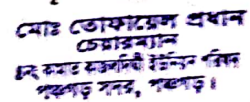 মোঃ তোফায়েল প্রধান
চেয়ারম্যান
কামাত কাজলদিঘী ইউনিয়ন পরিষদ
পঞ্চগড় সদর, পঞ্চগড়।